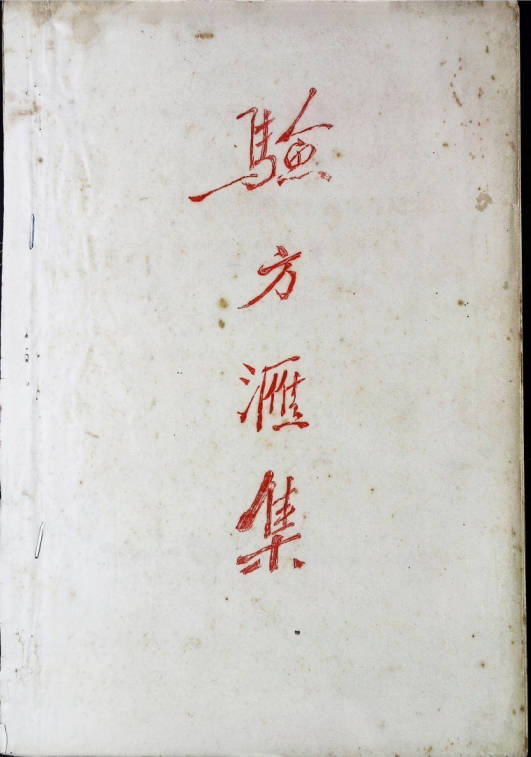 驗方滙集